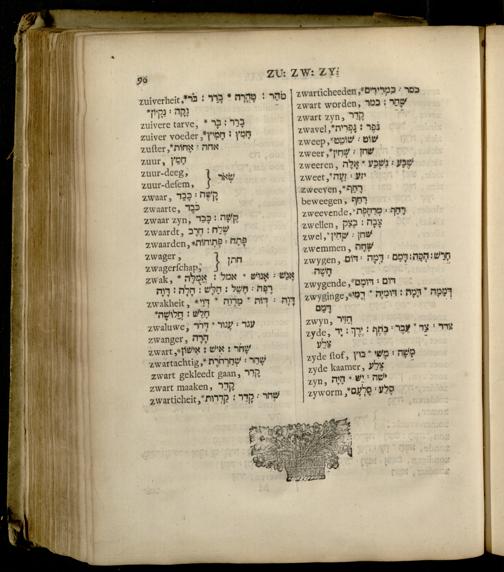 90
ZU: ZW: ZY:
zuiverheit,* טהר : טהרה * ברר : בר *
נקה : נקיון*
zuivere tarve, ברר : בר *
zuiver voeder, חמיץ : חמיץ*
zuster, אחה : אחות*
zuur, חמץ
zuur-deeg,
zuur-desem, } שאר
zwaar, קשה : כבד
zwaarte, כבד
zwaar zyn, קשה : כבד
zwaardt, שלח : חרב
zwaarden, פתח : פתיחות*
zwager,
zwagerschap, } חתן
zwak, אנש : אנוש * אמל : אמלה *
רפה : חשל : חלש : חלה : דוה
zwakheit, דוה : דות * מדוה * דוי*
חלש : חלושה*
zwaluwe, עגר : עגור : דרור
zwanger, הרה
zwart, שחר : איש : אישון*
zwartachtig, שחר : שחרחרת*
zwart gekleedt gaan, קדר
zwart maaken, קדר
zwarticheit, שחר : קדר : קדרות*
zwarticheeden, כמר : כמרירים*
zwart worden, שחר : כמר
zwart zyn, קדר
zwavel, גפר : גפרית*
zweep, שוט : שוטט*
zweer, שחן : שחין*
zweeren, שבע : נשבע * אלה
zweet, יזע : זעה*
zweeven, רחף*
beweegen, רחף
zweevende, רחף : מרחפת*
zwellen, צבה : בצק
zwel, שחן : שחין*
zwemmen, שחה
zwygen, חרש : הסה : דמם : דמה : דום
חשה
zwygende, דום : דומם*
zwyginge, דממה * דמה : דומיה * דמי*
דמם
zwyn, חזיר
zyde, צדד : צד : עבר : כתף : ירך : יד
צלע
zyde stof, משה : משי * בוץ
zyde kaamer, צלע
zyn, ישה : יש * היה
zyworm, סלע : סלעם*